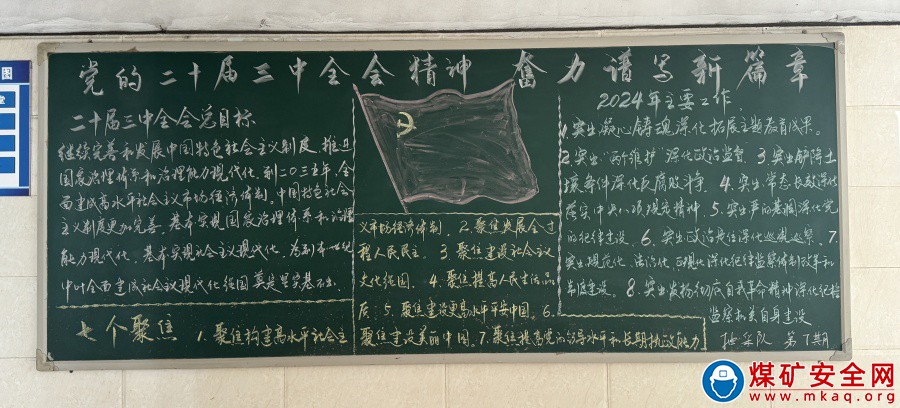 党的二十届三中全会精神 奋力谱写新篇章
二十届三中全会总目标
继续完善和发展中国特色社会主义制度,推进
国家治理体系和治理能力现代化。到二〇三五年,全
面建成高水平社会主义市场经济体制,中国特色社会
主义制度更加完善,基本实现国家治理体系和治理
能力现代化,基本实现社会主义现代化,为到本世纪
中叶全面建成社会主义现代化强国奠定坚实基础。
七个聚焦
1.聚焦构建高水平社会主
义市场经济体制。2.聚焦发展全过
程人民民主。3.聚焦建设社会主义
文化强国。4.聚焦提高人民生活品
质。5.聚焦建设更高水平平安中国。6.
聚焦建设美丽中国。7.聚焦提高党的领导水平和长期执政能力
2024年主要工作
1.突出凝心铸魂深化拓展主题教育成果。
2.突出“两个维护”深化政治监督。3.突出铲除土
壤条件深化反腐败斗争。4.突出常态长效深化
落实中央八项规定精神。5.突出严的基调深化党
的纪律建设。6.突出政治定位深化巡视巡察。7.
突出规范化、法治化、正规化深化纪检监察体制改革和
制度建设。8.突出发扬彻底自我革命精神深化纪检
监察机关自身建设
第7期
图
煤矿安全网
www.mkaq.org